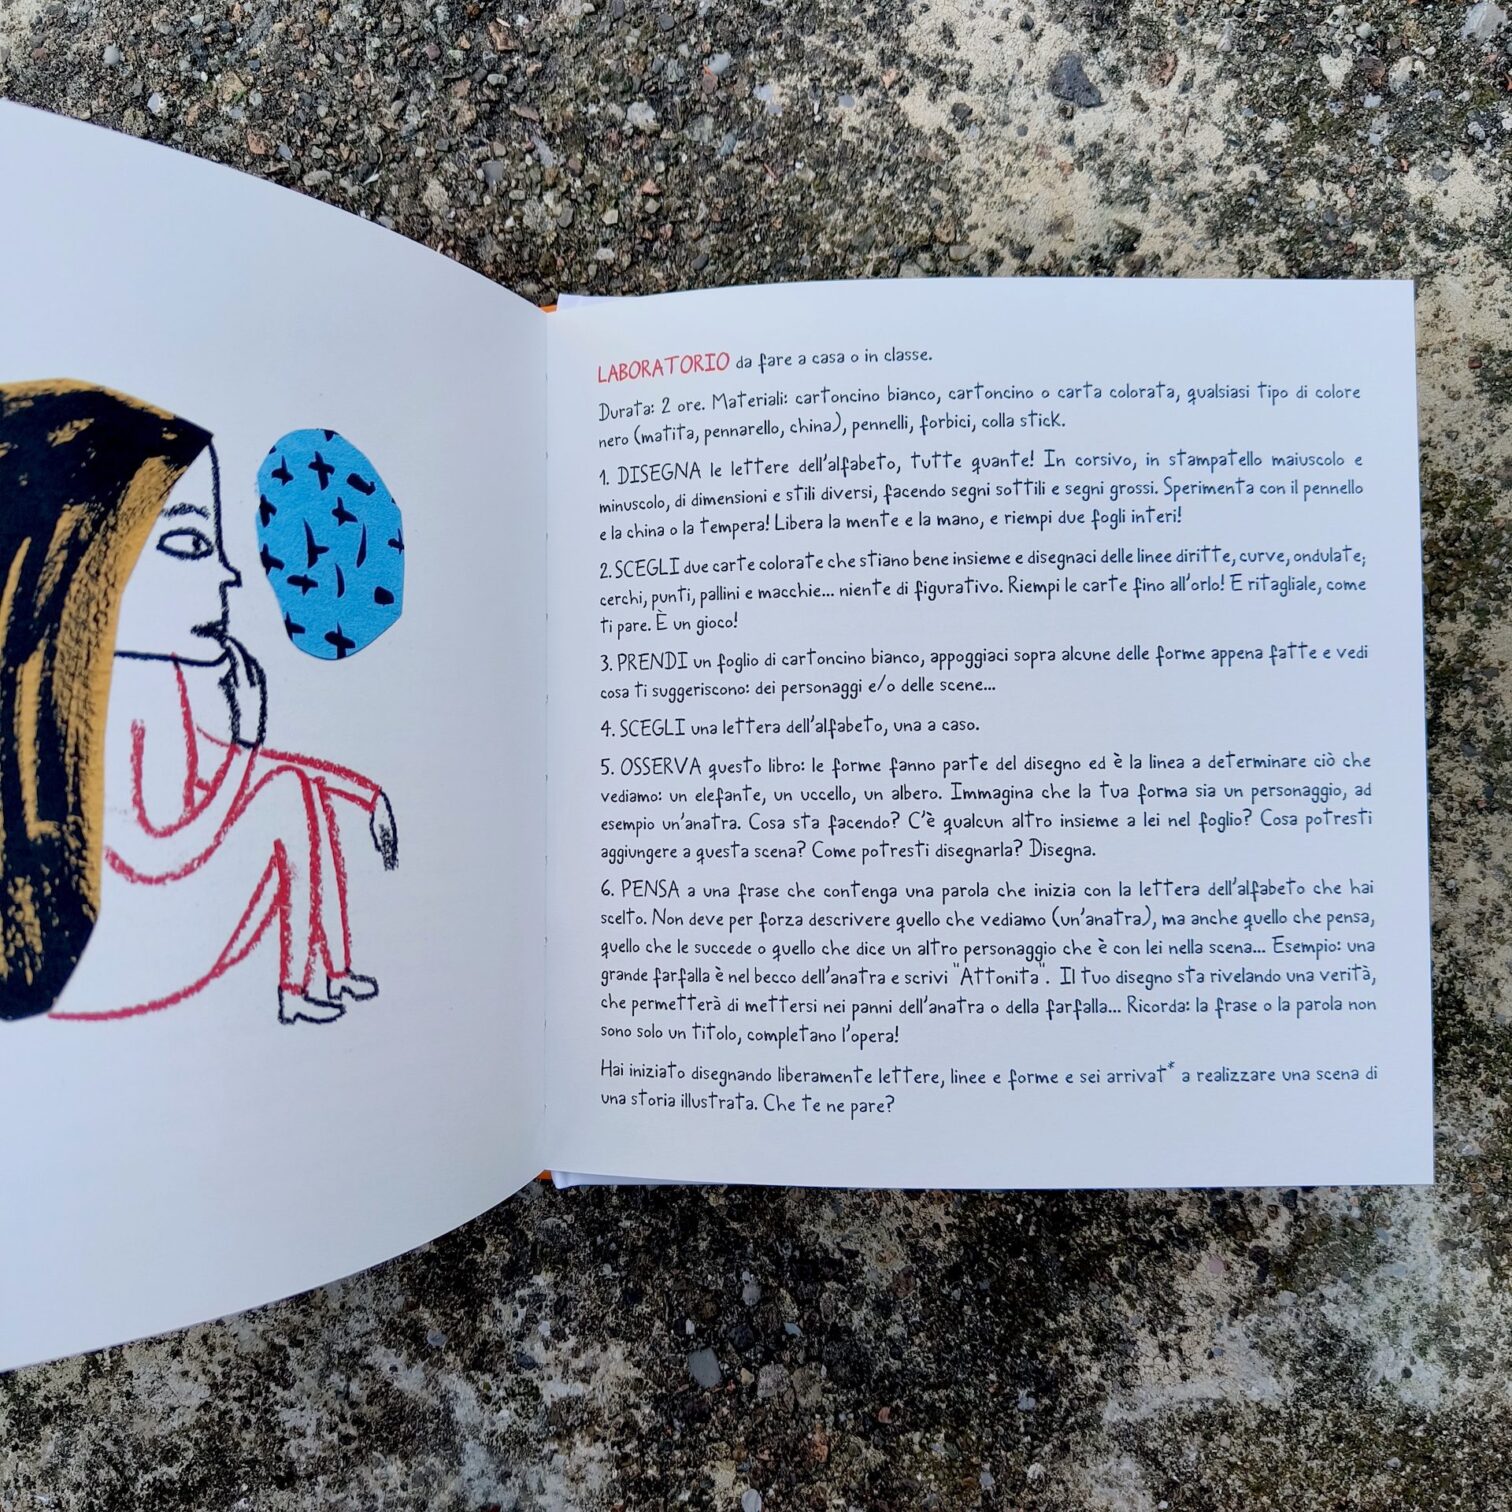 LABORATORIO da fare a casa o in classe.
Durata: 2 ore. Materiali: cartoncino bianco, cartoncino o carta colorata, qualsiasi tipo di colore
nero (matita, pennarello, china), pennelli, forbici, colla stick.
1. DISEGNA le lettere dell'alfabeto, tutte quante! In corsivo, in stampatello maiuscolo e
minuscolo, di dimensioni e stili diversi, facendo segni sottili e segni grossi. Sperimenta con il pennello
e la china o la tempera! Libera la mente e la mano, e riempi due fogli interi!
2. SCEGLI due carte colorate che stiano bene insieme e disegnaci delle linee diritte, curve, ondulate;
cerchi, punti, pallini e macchie... niente di figurativo. Riempi le carte fino all'orlo! E ritagliale, come
ti pare. È un gioco!
3. PRENDI un foglio di cartoncino bianco, appoggiaci sopra alcune delle forme appena fatte e vedi
cosa ti suggeriscono: dei personaggi e/o delle scene...
4. SCEGLI una lettera dell'alfabeto, una a caso.
5. OSSERVA questo libro: le forme fanno parte del disegno ed è la linea a determinare ciò che
vediamo: un elefante, un uccello, un albero. Immagina che la tua forma sia un personaggio, ad
esempio un'anatra. Cosa sta facendo? C'è qualcun altro insieme a lei nel foglio? Cosa potresti
aggiungere a questa scena? Come potresti disegnarla? Disegna.
6. PENSA a una frase che contenga una parola che inizia con la lettera dell'alfabeto che hai
scelto. Non deve per forza descrivere quello che vediamo (un'anatra), ma anche quello che pensa,
quello che le succede o quello che dice un altro personaggio che è con lei nella scena... Esempio: una
grande farfalla è nel becco dell'anatra e scrivi "Attonita". Il tuo disegno sta rivelando una verità,
che permetterà di mettersi nei panni dell'anatra o della farfalla... Ricorda: la frase o la parola non
sono solo un titolo, completano l'opera!
Hai iniziato disegnando liberamente lettere, linee e forme e sei arrivat* a realizzare una scena di
una storia illustrata. Che te ne pare?